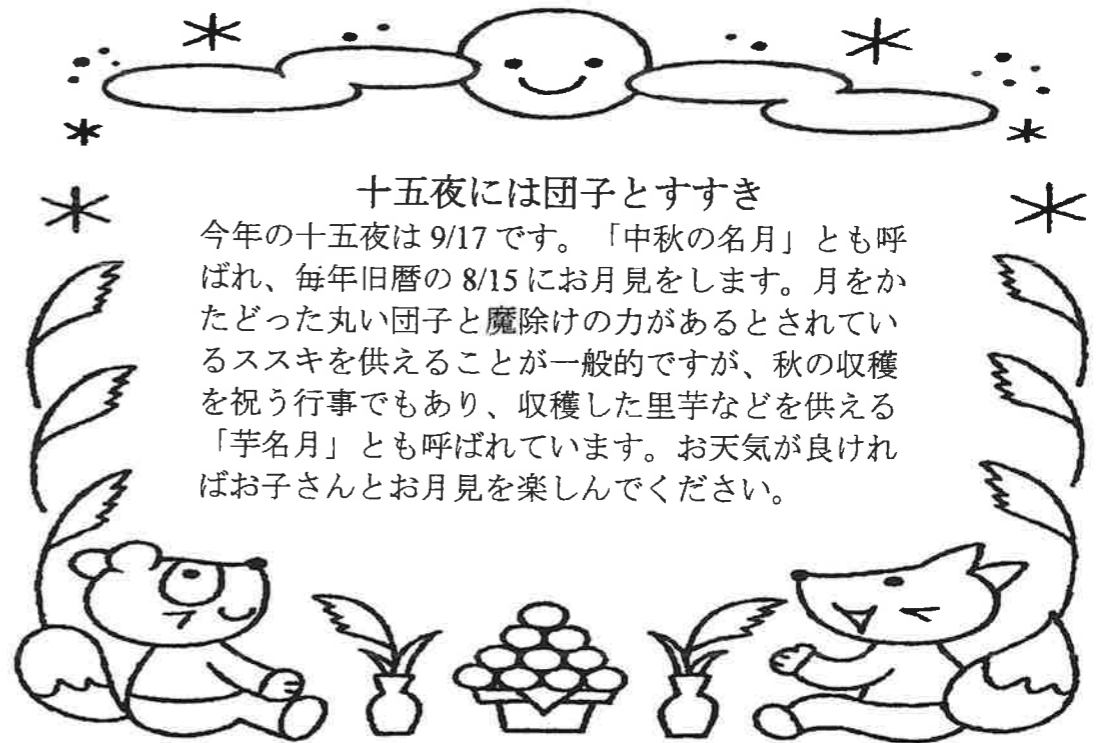 十五夜には団子とすすき
今年の十五夜は 9/17 です。「中秋の名月」とも呼
ばれ、毎年旧暦の 8/15 にお月見をします。月をか
たどった丸い団子と魔除けの力があるとされてい
るススキを供えることが一般的ですが、秋の収穫
を祝う行事でもあり、収穫した里芋などを供える
「芋名月」とも呼ばれています。お天気が良けれ
ばお子さんとお月見を楽しんでください。